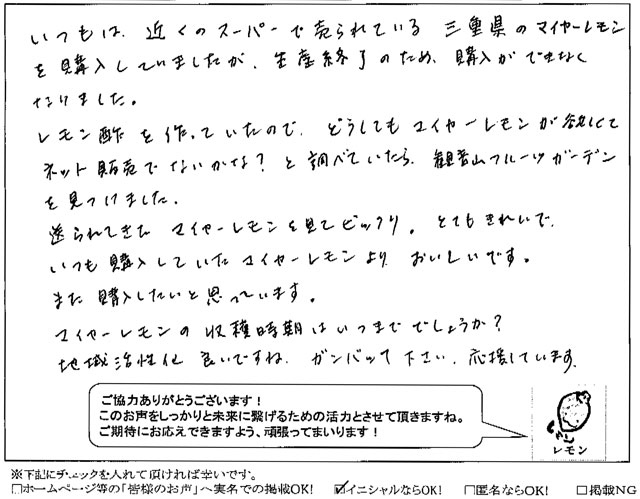 いつもは、近くのスーパーで売られている 三重県のマイヤーレモン
を購入していましたが、生産終了のため、購入ができなく
なりました。
レモン酢を作っていたので、どうしてもマイヤーレモンが欲しくて
ネット販売でないかな？と調べていたら、観音山フルーツガーデン
を見つけました。
送られてきた マイヤーレモンを見てビックリ。とてもきれいで、
いつも購入していたマイヤーレモンより おいしいです。
また購入したいと思っています。
マイヤーレモンの収穫時期はいつまででしょうか？
地域活性化 良いですね。ガンバッて下さい。応援しています。
ご協力ありがとうございます！
このお声をしっかりと未来に繋げるための活力とさせて頂きますね。
ご期待にお応えできますよう、頑張ってまいります！
レモン
※下記にチェックを入れて頂ければ幸いです。
□ホームページ等の「皆様のお声」へ実名での掲載OK! ☑イニシャルならOK! □匿名ならOK! □掲載NG